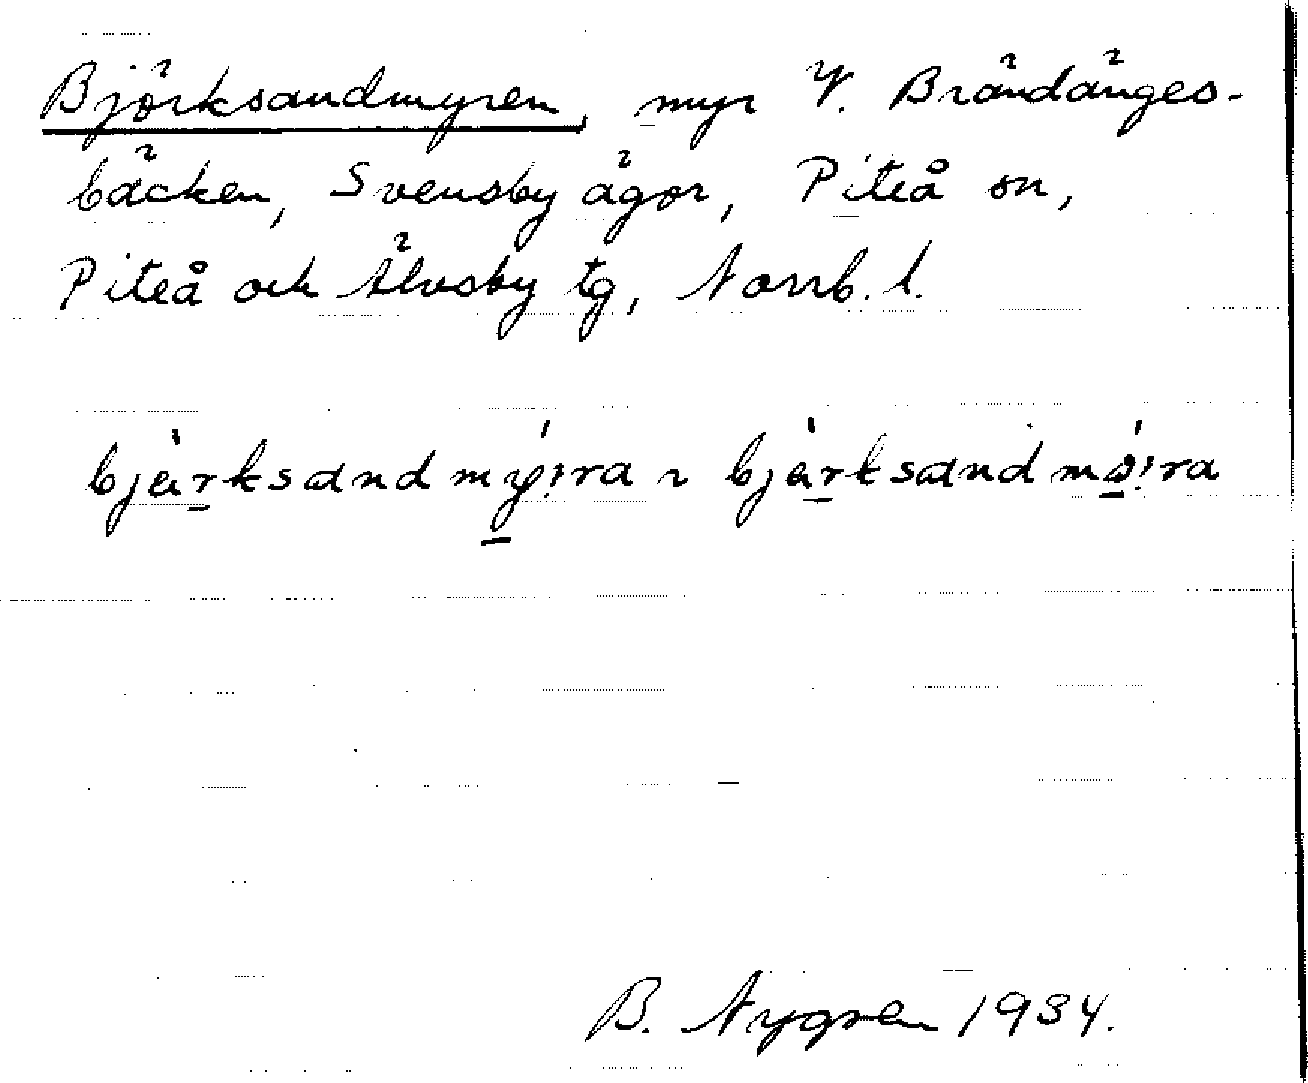 Björksandmyren, myr V. Brändänges-
bäcken, Svensby ägor, Piteå sn,
Piteå och Älvsby tg, Norrb. l.
bjärksandmy̱:ra ~ bjärksandmø̱:ra
B. Nygren 1934.